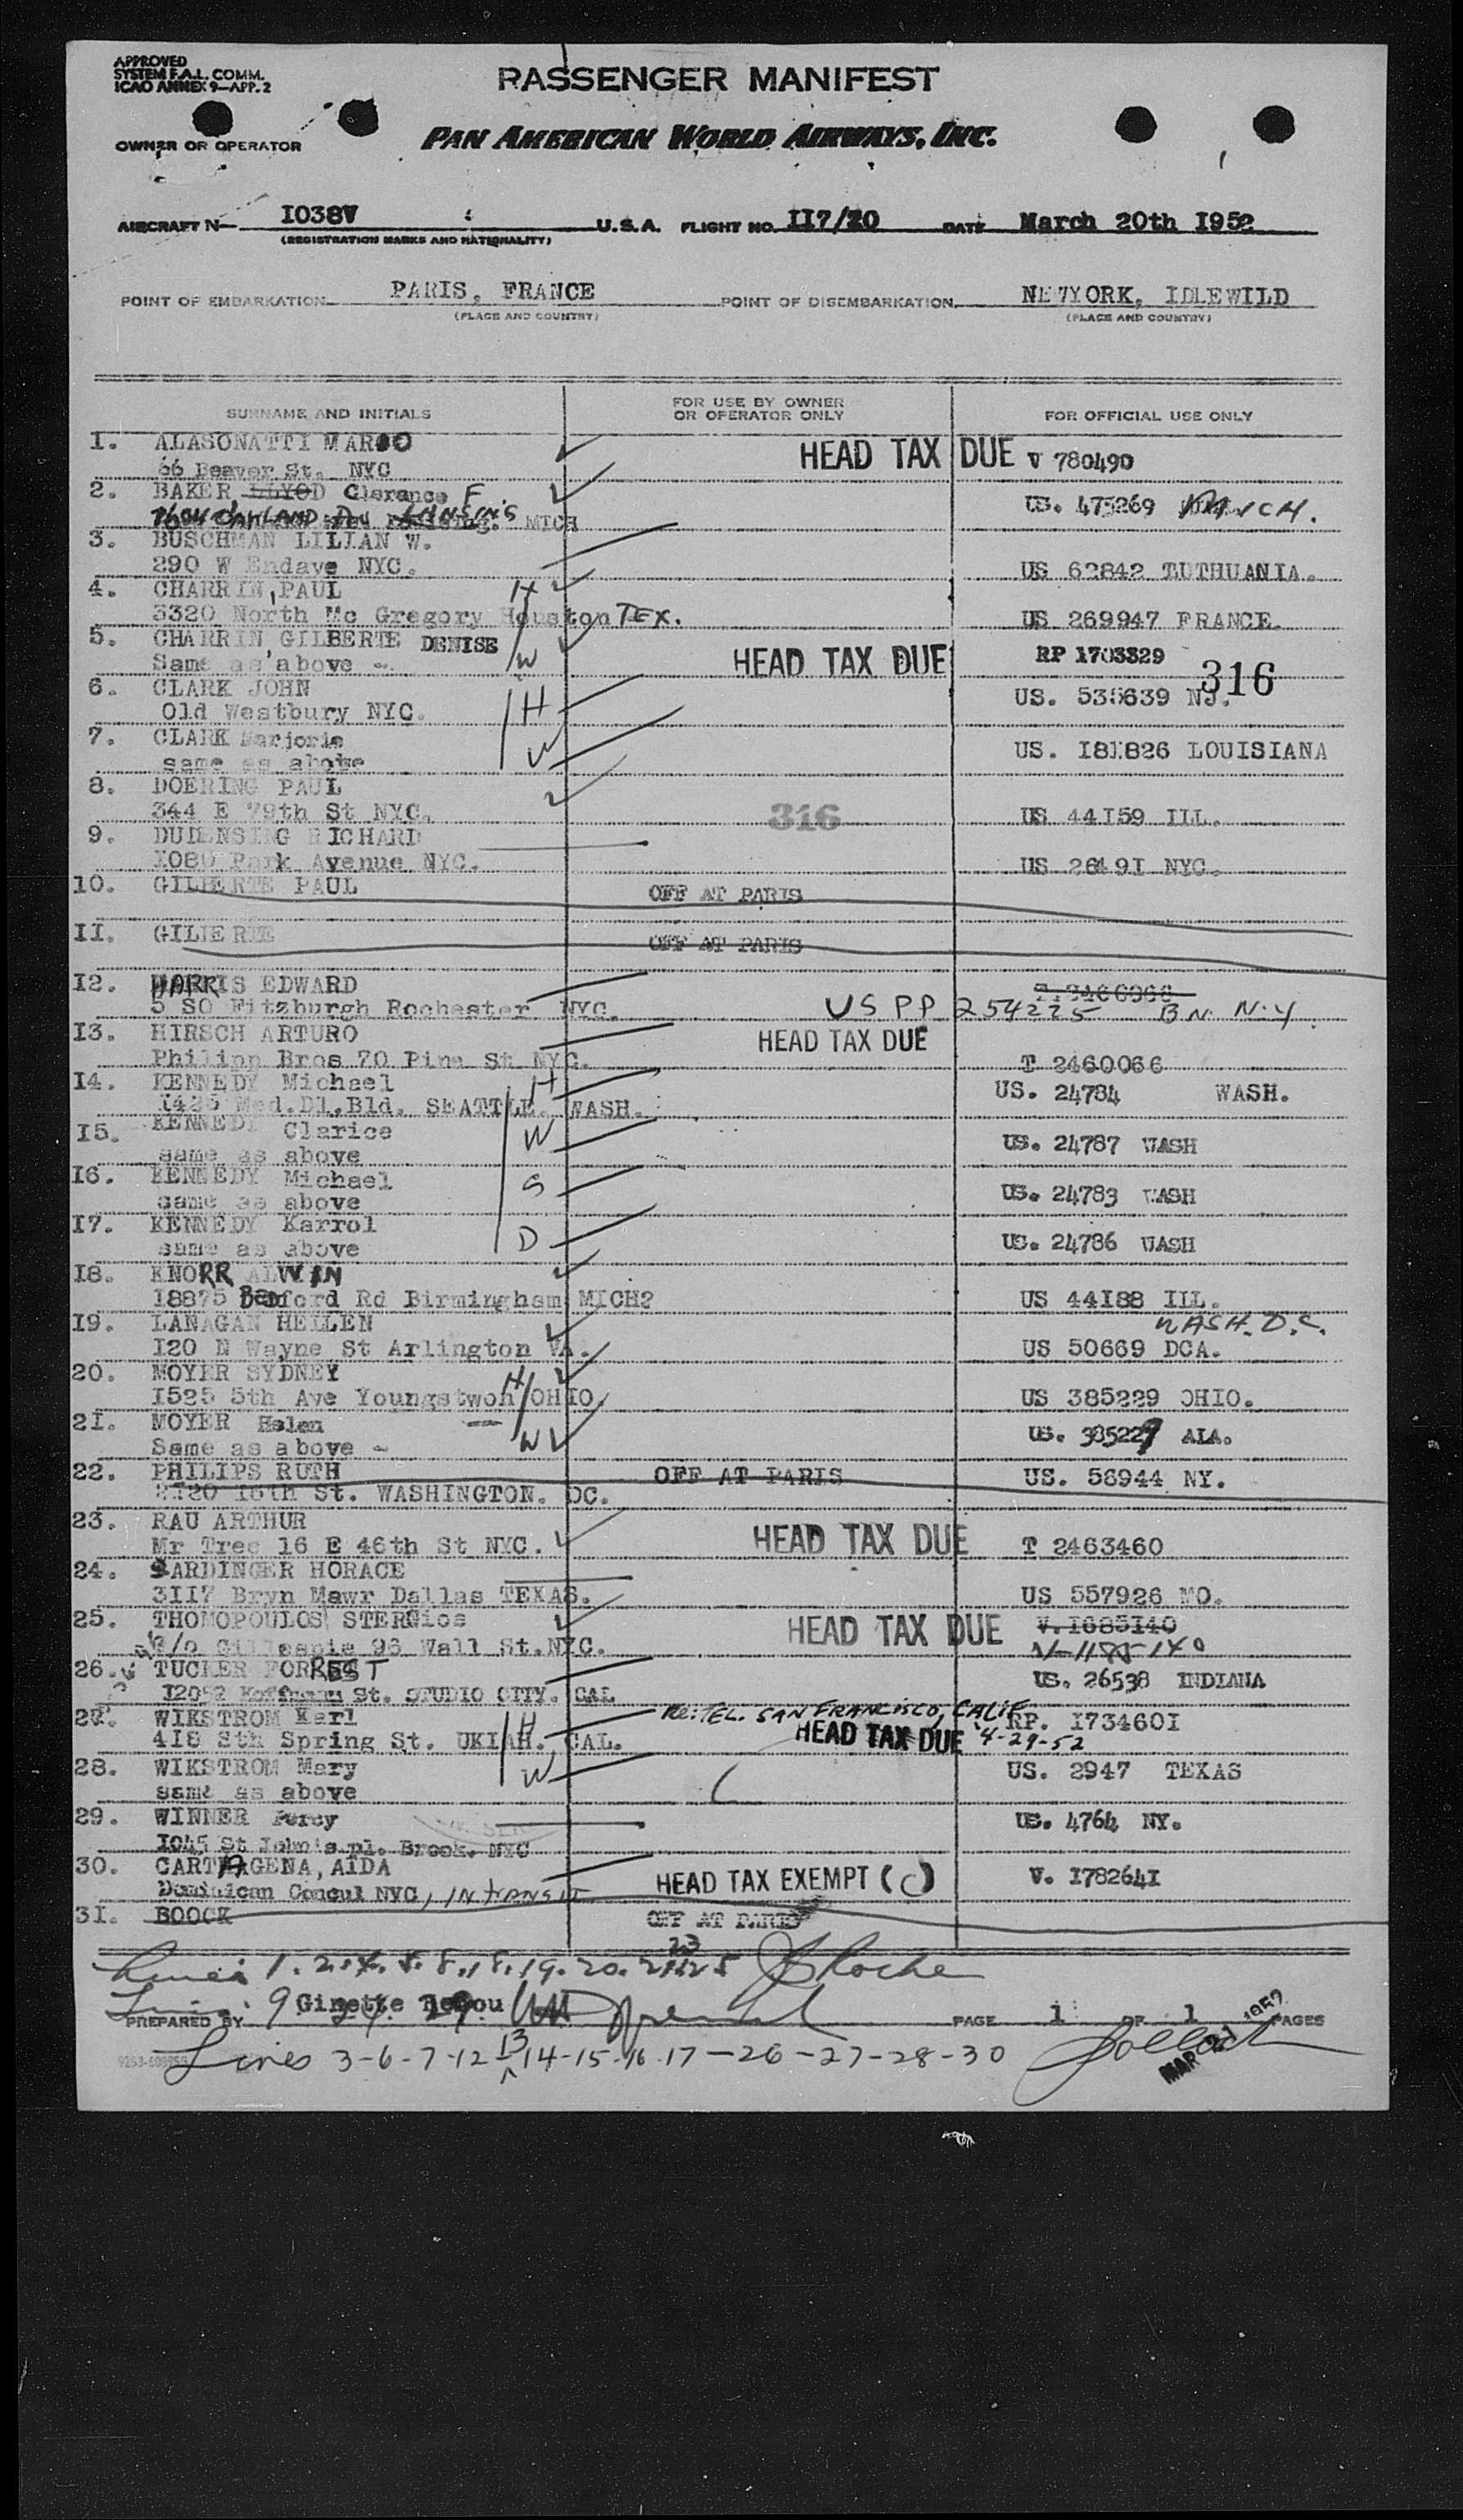 APPROVED
SYSTEM F.A.L. COMM.
ICAO ANNEX 9—APP. 2
PASSENGER MANIFEST
OWNER OR OPERATOR
PAN AMERICAN WORLD AIRWAYS, INC.
AIRCRAFT N— I038V U.S.A. FLIGHT NO. II7/20 DATE March 20th I952
(REGISTRATION MARKS AND NATIONALITY)
POINT OF EMBARKATION PARIS, FRANCE POINT OF DISEMBARKATION NEWYORK, IDLEWILD
(PLACE AND COUNTRY) (PLACE AND COUNTRY)
SURNAME AND INITIALS FOR USE BY OWNER OR OPERATOR ONLY FOR OFFICIAL USE ONLY
1. ALASONATTI MARIO HEAD TAX DUE V 780490
66 Beaver St. NYC
2. BAKER, LLYOD Clarance F. US. 475269 MICH.
OAKLAND LANSING MICH
3. BUSCHMAN LILIAN W.
290 W Endave NYC. US 62842 LUTHUANIA.
4. CHARRIN, PAUL H
3320 North Mc Gregory Houston TEX. US 269947 FRANCE.
5. CHARRIN, GILBERTE DENISE HEAD TAX DUE RP 1703329
Same as above - W 316
6. CLARK JOHN US. 535639 NJ.
Old Westbury NYC. H
7. CLARK Marjorie US. I81826 LOUISIANA
same as above W
8. DOERING PAUL
344 E 79th St NYC. 316 US 44I59 ILL.
9. DUDENSING RICHARD
I080 Park Avenue NYC. US 26491 NYC.
10. GILBERTE PAUL OFF AT PARIS
II. GILBERTE OFF AT PARIS
I2. HARRIS EDWARD
5 SO Fitzburgh Rochester NYC. US PP 254225 BN. N.Y.
I3. HIRSCH ARTURO HEAD TAX DUE
Philipp Bros 70 Pine St NYC. T 2460066
I4. KENNEDY Michael H US. 24784 WASH.
1426 Med.Dl.Bld. SEATTLE. WASH.
I5. KENNEDY Clarice W US. 24787 WASH
same as above
I6. KENNEDY Michael S US. 24783 WASH
same as above
I7. KENNEDY Karrol D US. 24786 WASH
same as above
I8. KNORR ALWIN
18875 Bedford Rd Birmingham MICH? US 44I88 ILL.
I9. LANAGAN HELLEN WASH. D.C.
I20 N Wayne St Arlington VA. US 50669 DCA.
20. MOYER SYDNEY H
I525 5th Ave Youngstwon OHIO. US 385229 OHIO.
2I. MOYER Helen US. 385229 ALA.
Same as above - W
22. PHILIPS RUTH OFF AT PARIS US. 58944 NY.
16th St. WASHINGTON. DC.
23. RAU ARTHUR HEAD TAX DUE
Mr Tree 16 E 46th St NYC. T 2463460
24. SARDINGER HORACE
3II7 Bryn Mawr Dallas TEXAS. US 557926 MO.
25. THOMOPOULOS STERGios HEAD TAX DUE V. I685I40
c/o Gillespie 96 Wall St.NYC.
26. TUCKER FORREST US. 26538 INDIANA
I2052 Hoffman St. STUDIO CITY. CAL
27. WIKSTROM Karl H Re: TEL. SAN FRANCISCO, CALIF RP. I73460I
418 Sth Spring St. UKIAH. CAL. HEAD TAX DUE 4-29-52
28. WIKSTROM Mary W US. 2947 TEXAS
same as above
29. WINNER Percy US. 4764 NY.
I045 St John's pl. Brook. NYC
30. CARTAGENA, AIDA HEAD TAX EXEMPT (C) V. I78264I
Dominican Consul NYC, IN TRANSIT
3I. BOOCK OFF AT PARIS
23
Lines 1.2.4.5.8.18.19.20.21.25 Roche
Lines: 9 24 29.
PREPARED BY Ginette PAGE 1 OF 1 PAGES
Lines 3-6-7-12-13 14-15-16-17-26-27-28-30
MAR 21 1952